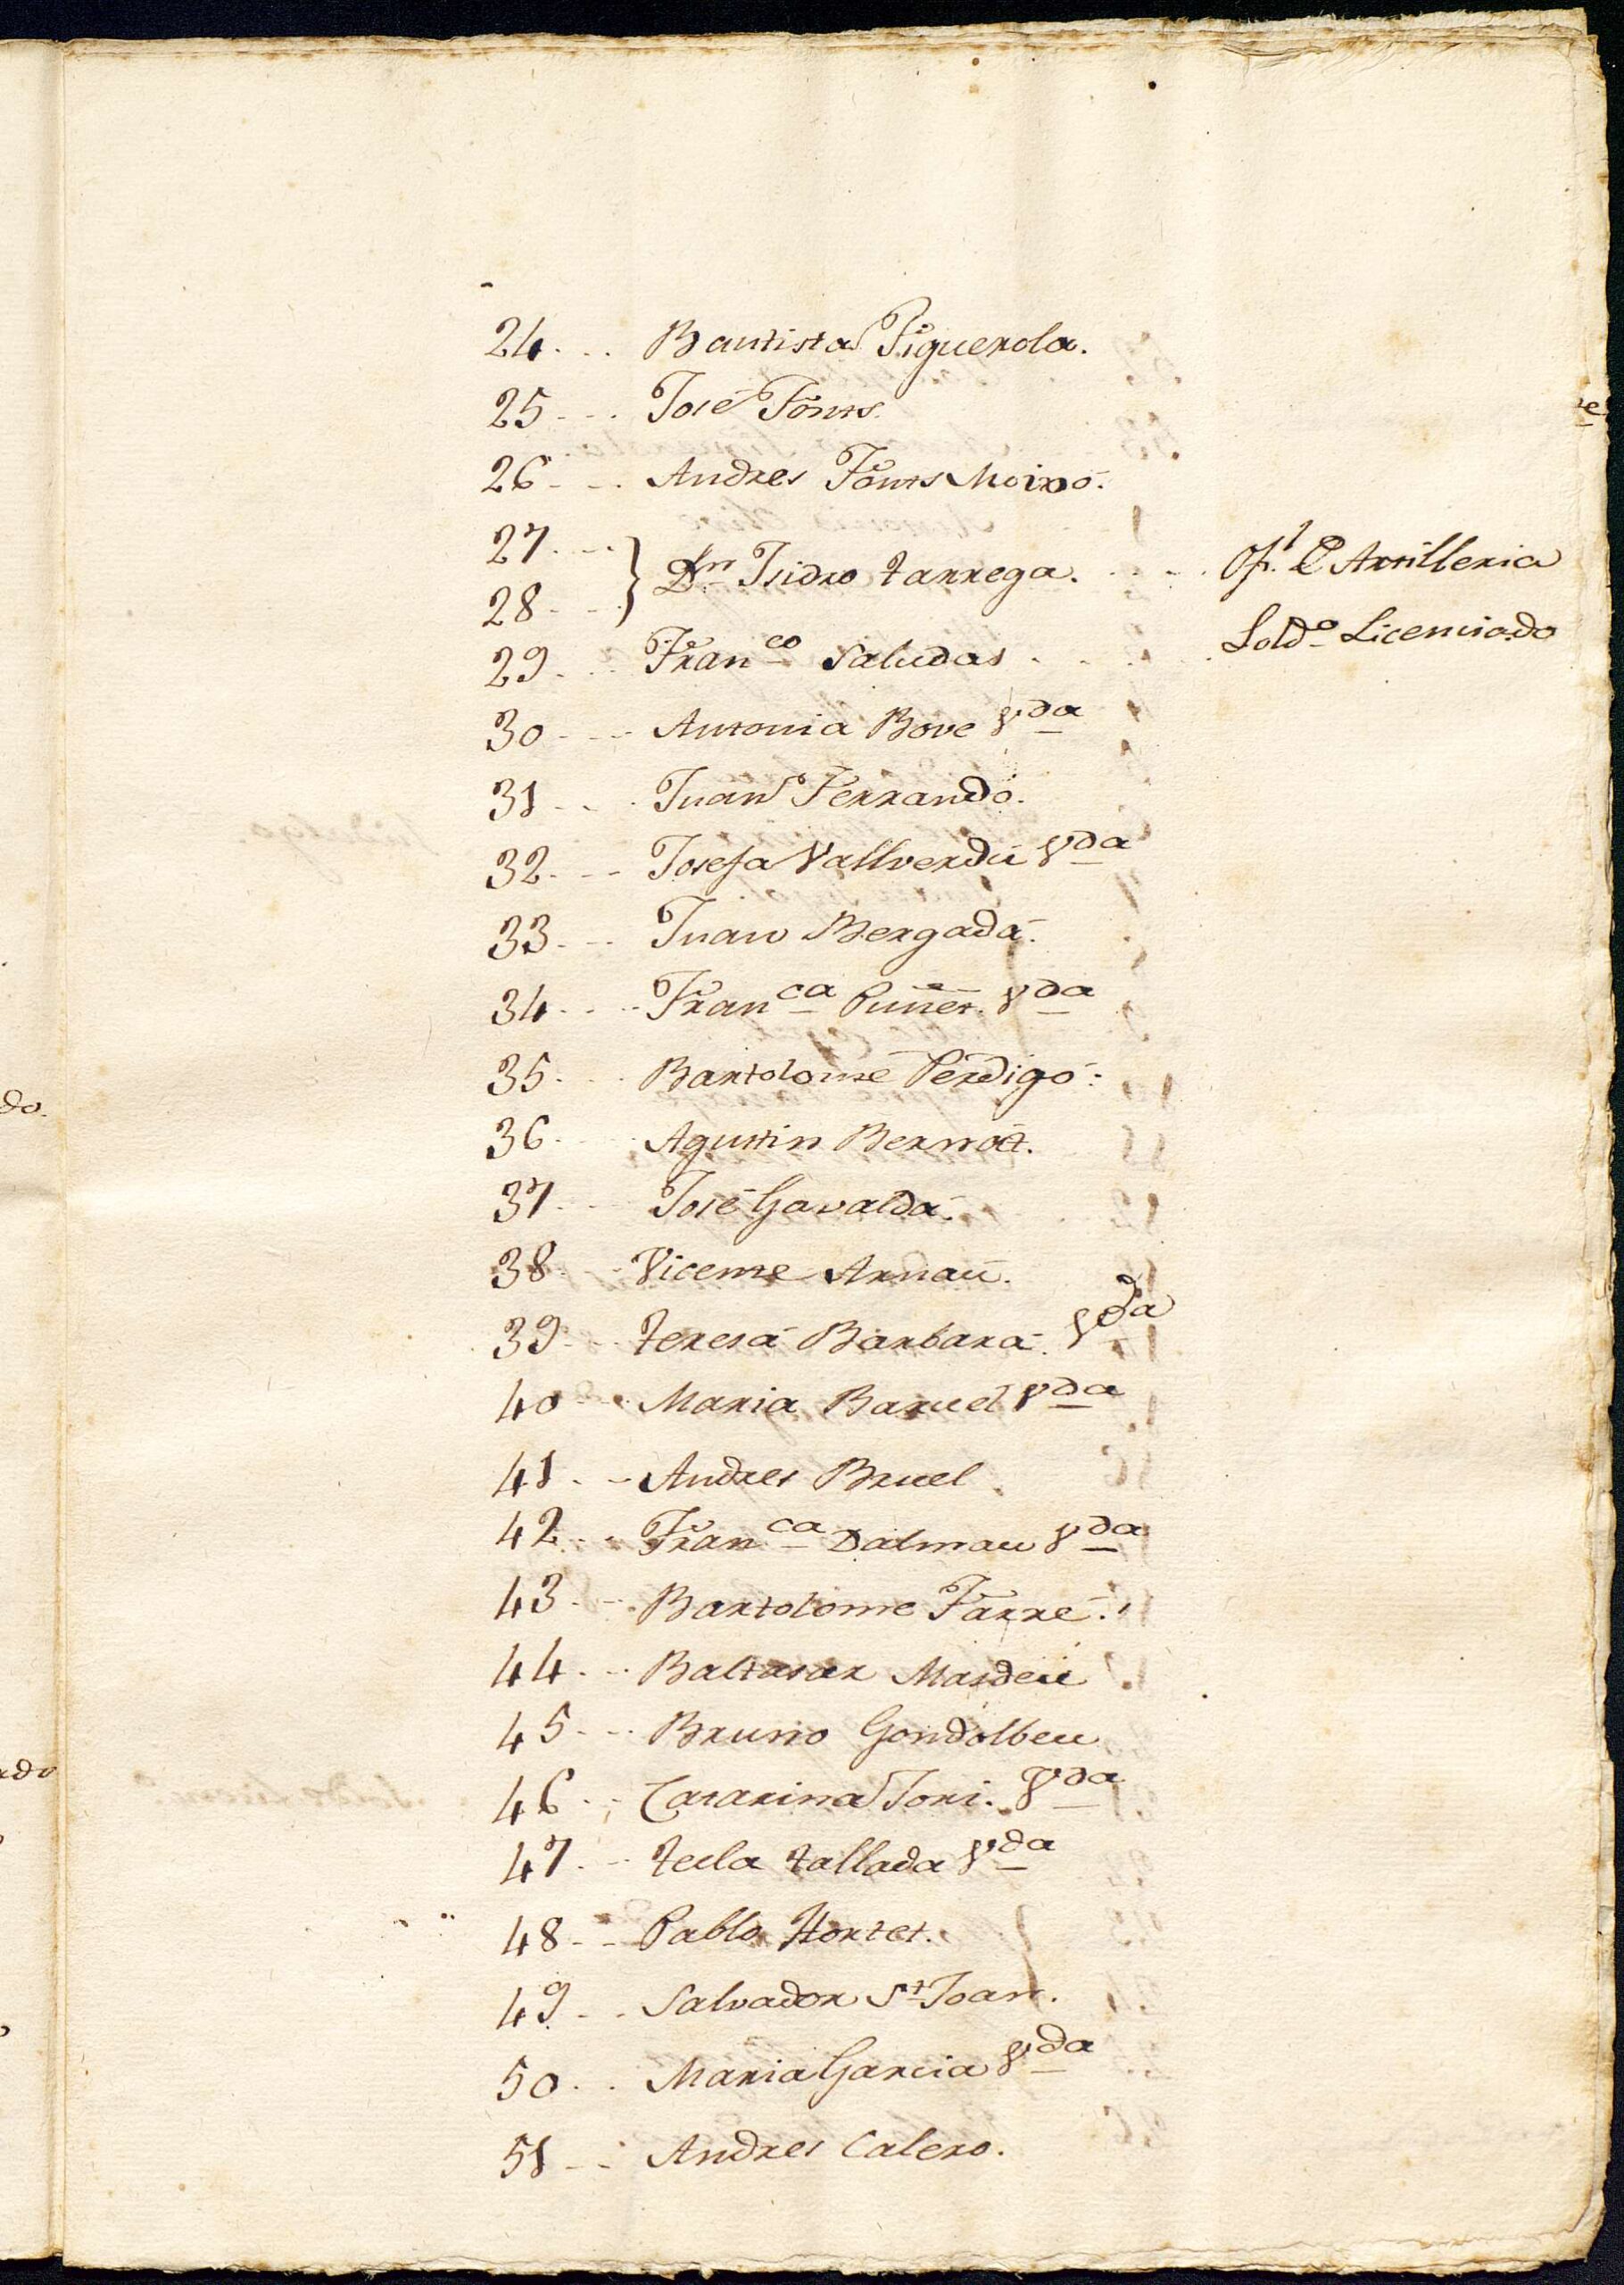 24... Bautista Figuerola.
25... José Fonts.
26... Andres Fonts Moixó.
27...
28... } Dn Isidro Tarrega. .... Ofl. Artilleria
29... Franco Saludas .... Soldo Licenciado
30... Antonia Bove Vda
31... Juan Ferrandó.
32... Josefa Vallverdú Vda
33... Juan Bergadá.
34... Franca Puñet. Vda
35... Bartolomé Perdigó.
36... Agustin Bernat.
37... José Gavaldá.
38... Vicente Arnau.
39... Teresa Barbará. Vda
40... Maria Baruel Vda
41... Andres Bruel.
42... Franca Dalmau Vda
43... Bartolome Farré.
44... Baltasar Masdeu
45... Bruno Gondolbeu
46... Catarina Tori. Vda
47... Tecla Tallada Vda
48... Pablo Hortet.
49... Salvador St Joan.
50... Maria Garcia Vda
51... Andres Calero.